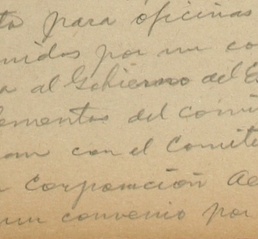 to para oficinas
nidos por un co
a al Gobierno del E
lementos del comi
an con el Comite
Corporación Ae
un convenio por